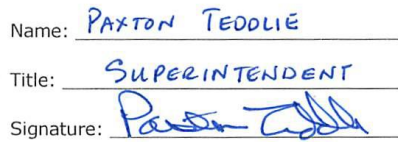 Name: PAXTON TEDDLIE
Title: SUPERINTENDENT
Signature: Paxton Teddlie